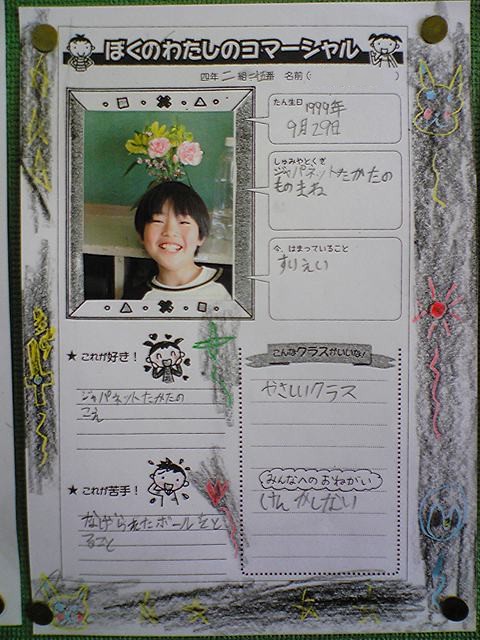 ぼくのわたしのコマーシャル
四年 二 組 番 名前( )
たん生日
1999年
9月29日
しゅみやとくぎ
ジャパネットたかたの
ものまね
今、はまっていること
すりえい
★これが好き!
ジャパネットたかたの
こえ
★これが苦手!
なげられたボールをと
ること
こんなクラスがいいな!
やさしいクラス
みんなへのおねがい
けんかしない